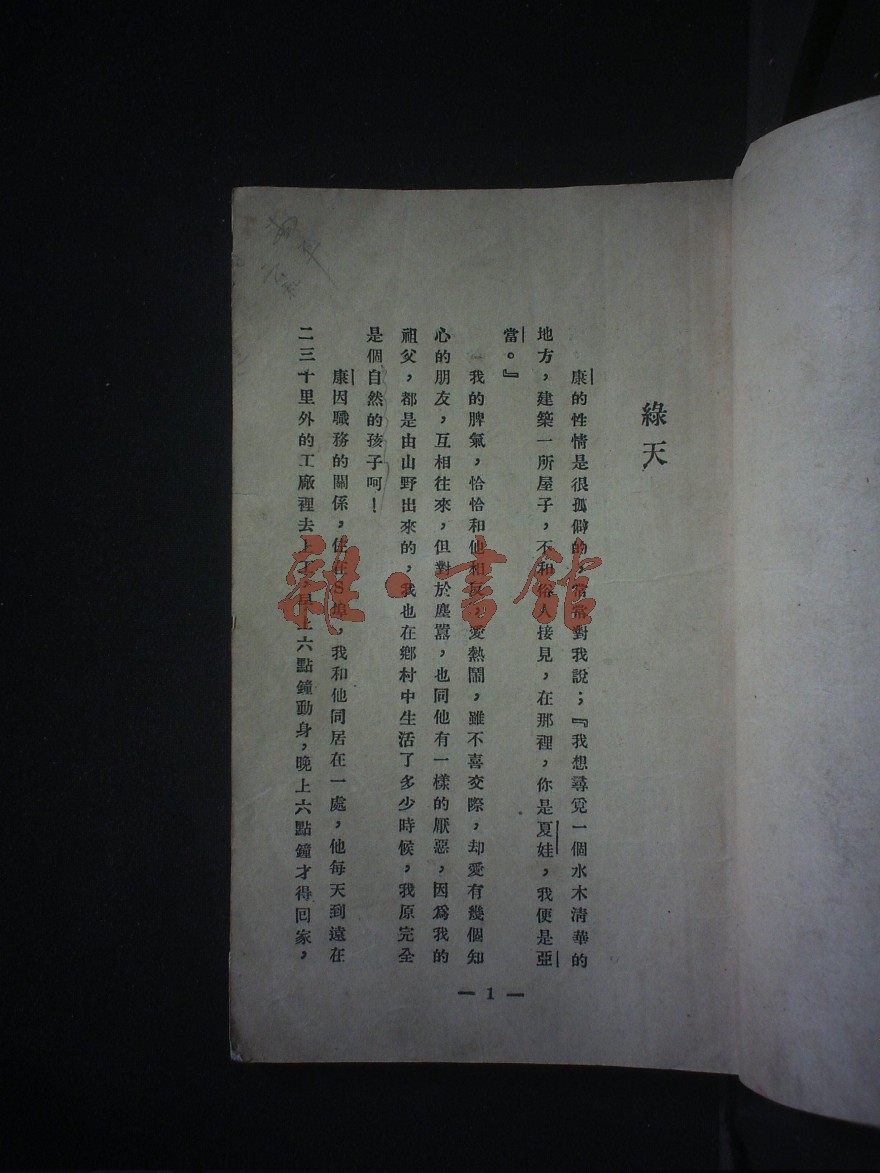 綠天
康的性情是很孤僻的，常常對我說；『我想尋覓一個水木清華的
地方，建築一所屋子，不和俗人接見，在那裡，你是夏娃，我便是亞
當。』
我的脾氣，恰恰和他相反，愛熱鬧，雖不喜交際，却愛有幾個知
心的朋友，互相往來，但對於塵囂，也同他有一樣的厭惡，因爲我的
祖父，都是由山野出來的，我也在鄉村中生活了多少時候，我原完全
是個自然的孩子呵！
康因職務的關係，住在S埠，我和他同居在一處，他每天到遠在
二三十里外的工廠裡去上工，早上六點鐘動身，晚上六點鐘才得回家，
— 1 —
雜·書館